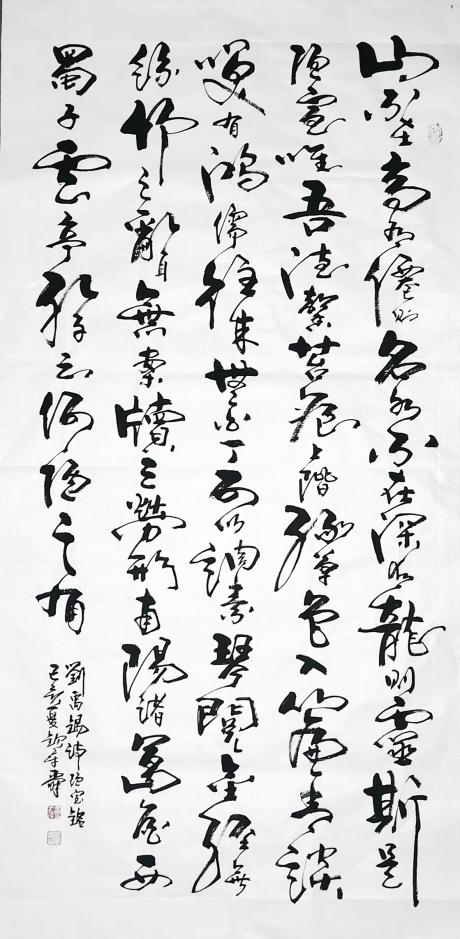 山不在高有僊則名水不在深有龍則靈斯是
陋室唯吾德馨苔痕上階綠草色入簾青談
笑有鴻儒往來無白丁可以調素琴閱金經無
絲竹之亂耳無案牘之勞形南陽諸葛廬西
蜀子雲亭孔子云何陋之有
劉禹錫詩陋室銘
己亥夏